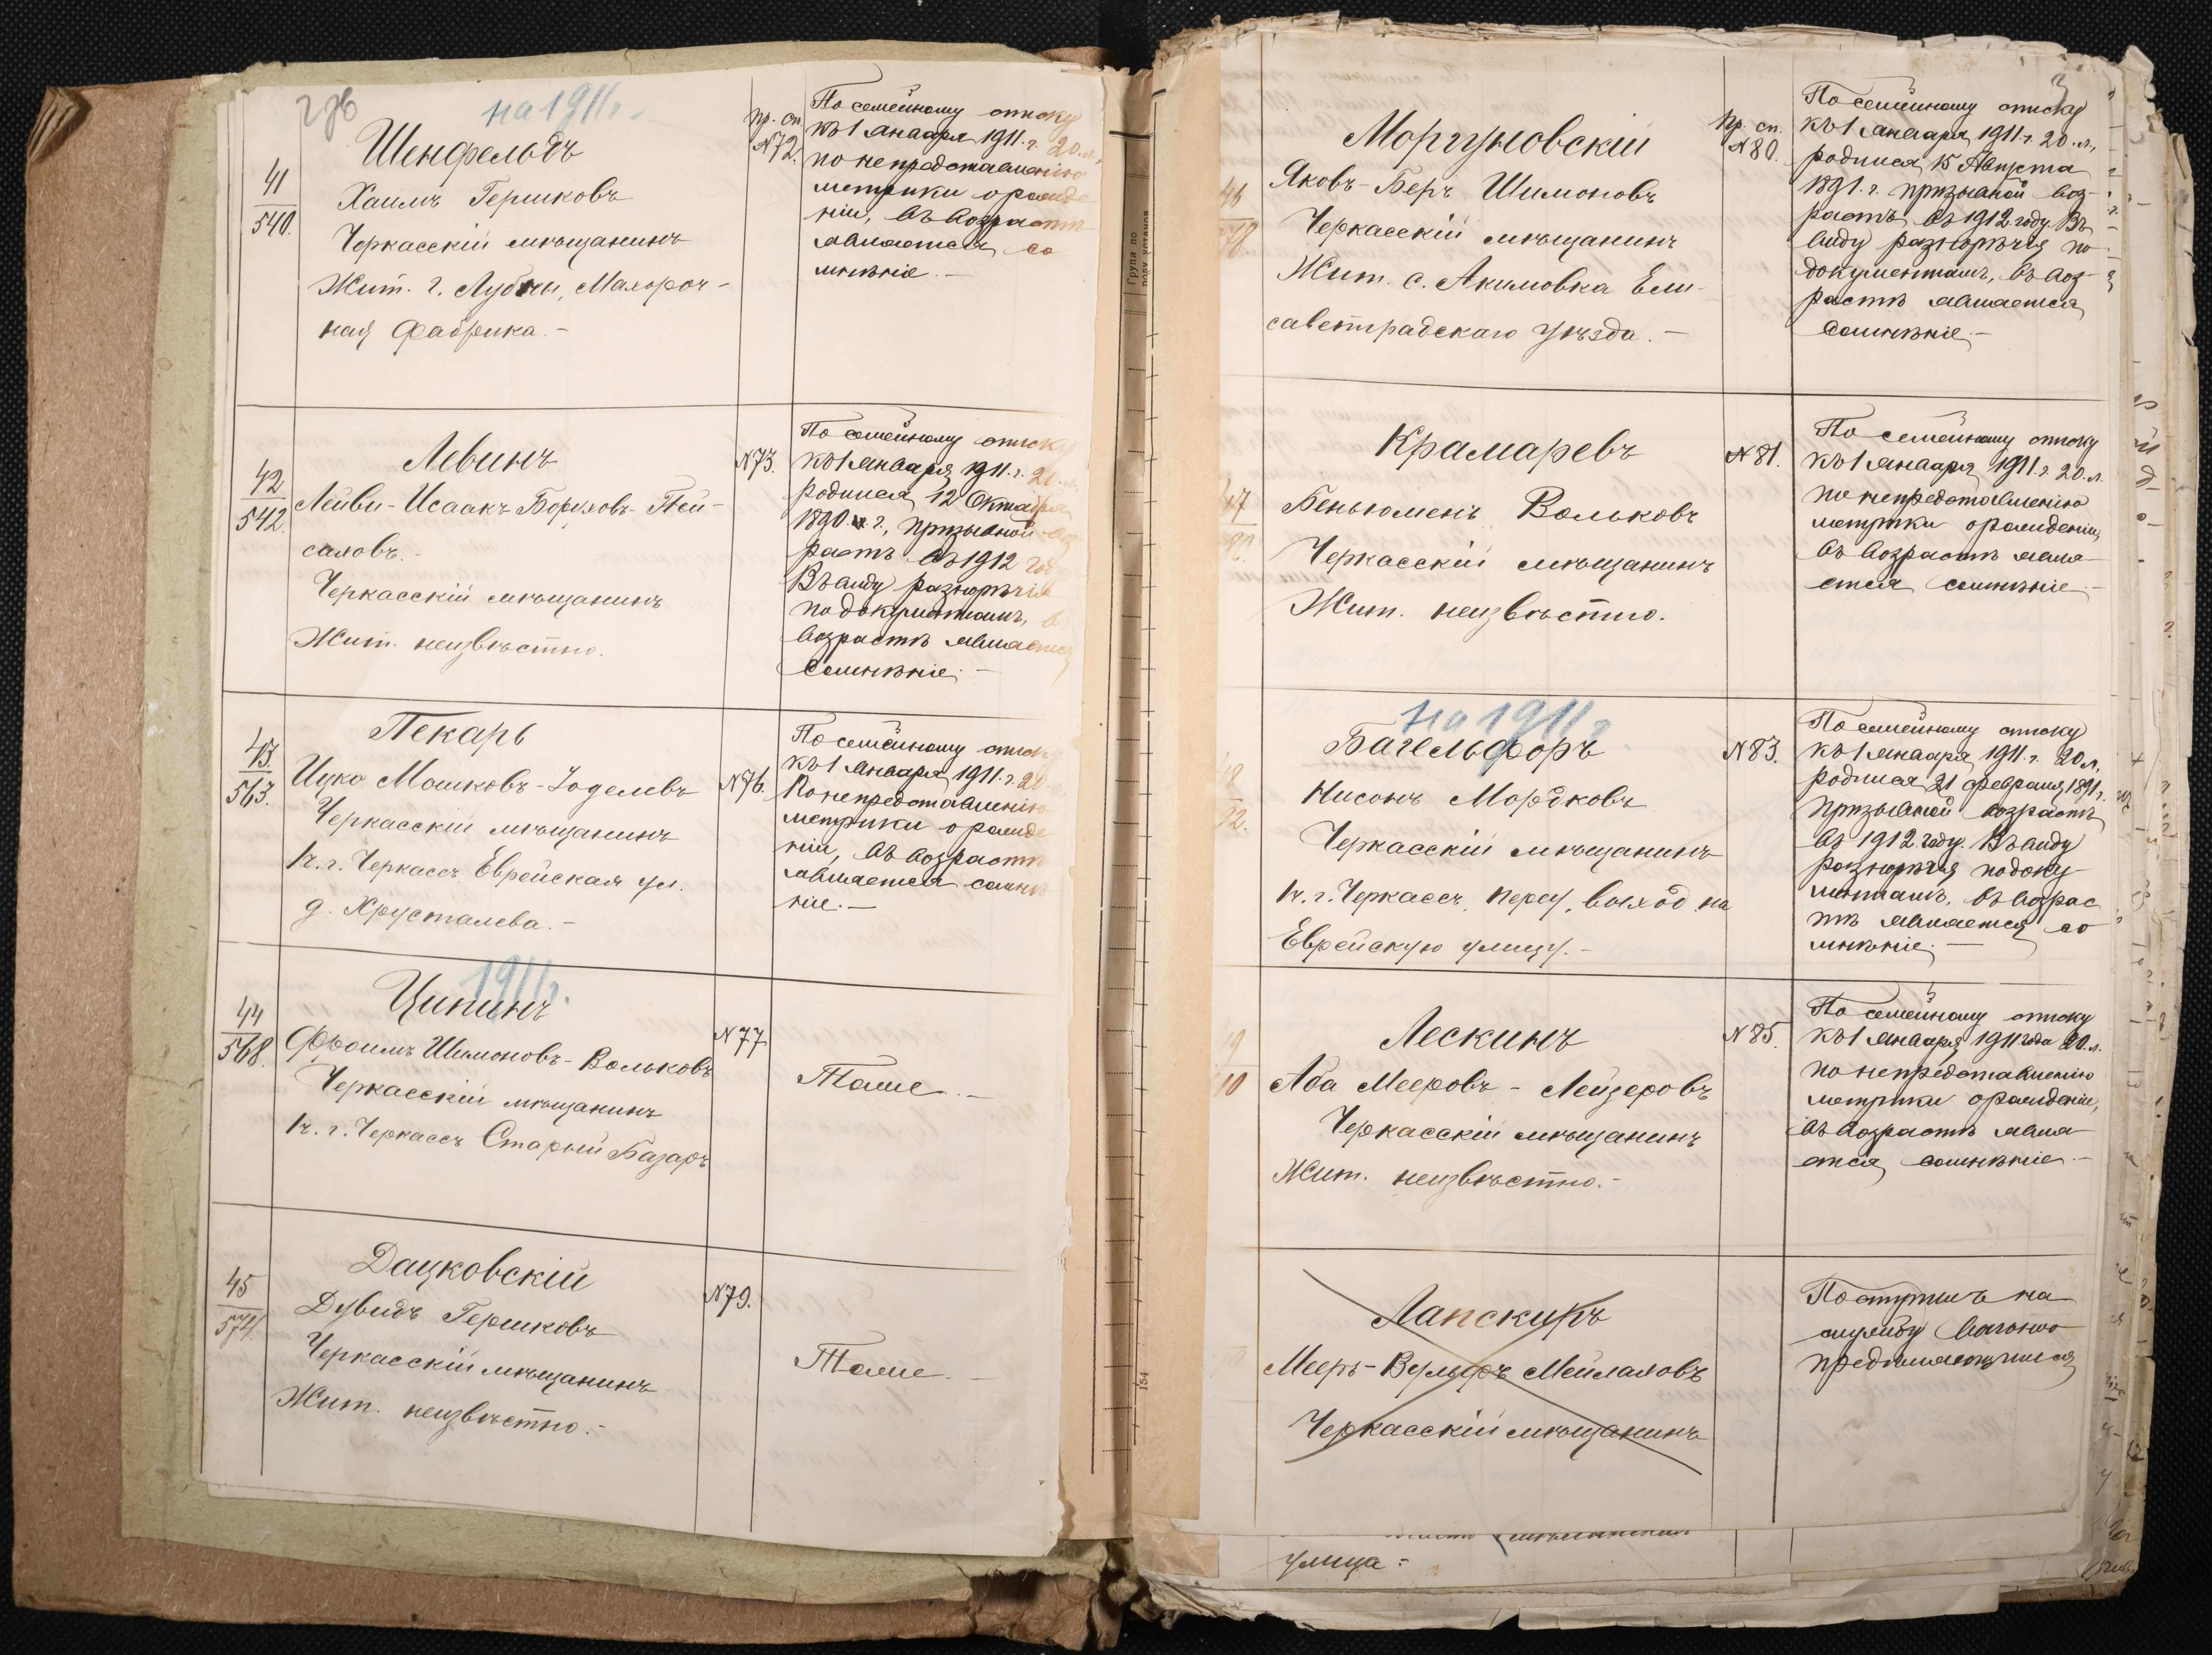 на 1911 г.
41
540.
Шенфельдъ
Хаимъ Гершковъ
Черкасскій мѣщанинъ
Жит. г. Лубны, Махороч-
ная фабрика.-
Пр. сп.
N72.
По семейному списку
къ 1 Января 1911 г. 20 л,
по непредставленію
метрики о рожде
ніи, въ возрастѣ
является со
мнѣніе.-
42
542.
Левинъ
Лейви-Исаакъ Борухов-Пей-
саховъ.-
Черкасскій мѣщанинъ
Жит. неизвѣстно.
N73.
По семейному списку
къ 1 Января 1911 г. 20
родился 12 Октября
1890 г., призывной воз
растъ въ 1912 год
Въ виду разнорѣчія
по документамъ, въ
возрастѣ является
сомнѣніе.-
43.
563.
Пекарь
Ицко Мошковъ-Іоделевъ
Черкасскій мѣщанинъ
Въ г. Черкассъ Еврейская ул.
д. Хрусталева.-
N76.
По семейному списку
къ 1 Января 1911 г. 20
По непредставленію
метрики о рожде
ніи, въ возрастѣ
является сомнѣ
ніе.-
1911 г.
44
568.
Ципинъ
Фроимъ Шимоновъ-Вольковъ
Черкасскій мѣщанинъ
Въ г. Черкассъ Старый Базаръ
N77
Тоже.-
45
574.
Дацковскій
Дувидъ Гершковъ
Черкасскій мѣщанинъ
Жит. неизвѣстно.-
N79.
Тоже.-
Група по
154
3
46
78.
Моргуновскій
Яковъ-Беръ Шимоновъ
Черкасскій мѣщанинъ
Жит. с. Акимовка Ели-
саветградскаго уѣзда.-
Пр. сп.
N80.
По семейному списку
къ 1 Января 1911 г. 20 л,
родился 15 Августа
1891 г. призывной воз-
растъ въ 1912 году. Въ
виду разнорѣчія по
документамъ, въ воз-
растѣ является
сомнѣніе.-
47
Крамаревъ
Беньюменъ Вольковъ
Черкасскій мѣщанинъ
Жит. неизвѣстно.
N81.
По семейному списку
къ 1 Января 1911 г. 20 л.
по непредставленію
метрики о рожденіи,
въ возрастѣ явля-
ется сомнѣніе.-
на 1911 г.
48
Багельфоръ
Нисонъ Мордковъ
Черкасскій мѣщанинъ
Въ г. Черкассъ, переу, выход. на
Еврейскую улицу.-
N83.
По семейному списку
къ 1 Января 1911 г. 20 л,
родился 21 февраля 1891 г.
призывной возрастъ
въ 1912 году. Въ виду
разнорѣчія по доку
ментамъ, въ возрас
тѣ является со
мнѣніе.-
10
Лескинъ
Аба Мееровъ-Лейзеровъ
Черкасскій мѣщанинъ
Жит. неизвѣстно.-
N85.
По семейному списку
къ 1 Января 1911 года 20 л.
по непредставленію
метрики о рожденіи,
въ возрастѣ явля-
ется сомнѣніе.-
Лапскиръ
Мееръ-Вульфъ Мейлаховъ
Черкасскій мѣщанинъ
Поступилъ на
службу вольно
предѣляющимся
улица.-